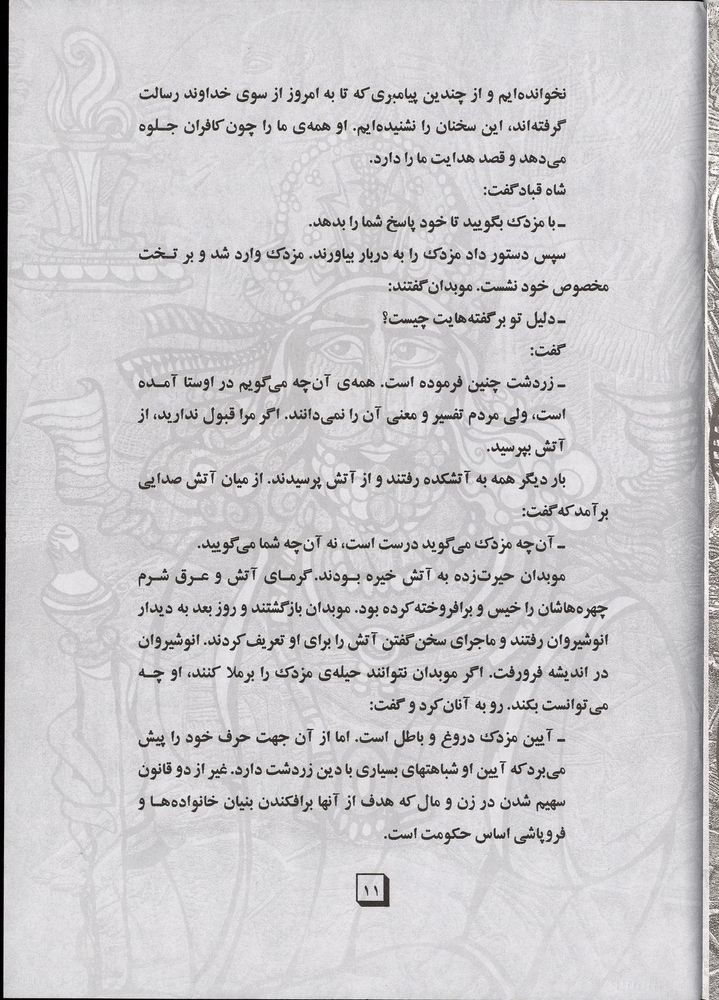 نخوانده‌ایم و از چندین پیامبری که تا به امروز از سوی خداوند رسالت
گرفته‌اند، این سخنان را نشنیده‌ایم. او همه‌ی ما را چون کافران جلوه
می‌دهد و قصد هدایت ما را دارد.
شاه قباد گفت:
ـ با مزدک بگویید تا خود پاسخ شما را بدهد.
سپس دستور داد مزدک را به دربار بیاورند. مزدک وارد شد و بر تخت
مخصوص خود نشست. موبدان گفتند:
ـ دلیل تو بر گفته‌هایت چیست؟
گفت:
ـ زردشت چنین فرموده است. همه‌ی آن‌چه می‌گویم در اوستا آمده
است، ولی مردم تفسیر و معنی آن را نمی‌دانند. اگر مرا قبول ندارید، از
آتش بپرسید.
بار دیگر همه به آتشکده رفتند و از آتش پرسیدند. از میان آتش صدایی
برآمد که گفت:
ـ آن‌چه مزدک می‌گوید درست است، نه آن‌چه شما می‌گویید.
موبدان حیرت‌زده به آتش خیره بودند. گرمای آتش و عرق شرم
چهره‌هاشان را خیس و برافروخته کرده بود. موبدان بازگشتند و روز بعد به دیدار
انوشیروان رفتند و ماجرای سخن گفتن آتش را برای او تعریف کردند. انوشیروان
در اندیشه فرورفت. اگر موبدان نتوانند حیله‌ی مزدک را برملا کنند، او چه
می‌توانست بکند. رو به آنان کرد و گفت:
ـ آیین مزدک دروغ و باطل است. اما از آن جهت حرف خود را پیش
می‌برد که آیین او شباهتهای بسیاری با دین زردشت دارد. غیر از دو قانون
سهیم شدن در زن و مال که هدف از آنها برافکندن بنیان خانواده‌ها و
فروپاشی اساس حکومت است.
۱۱